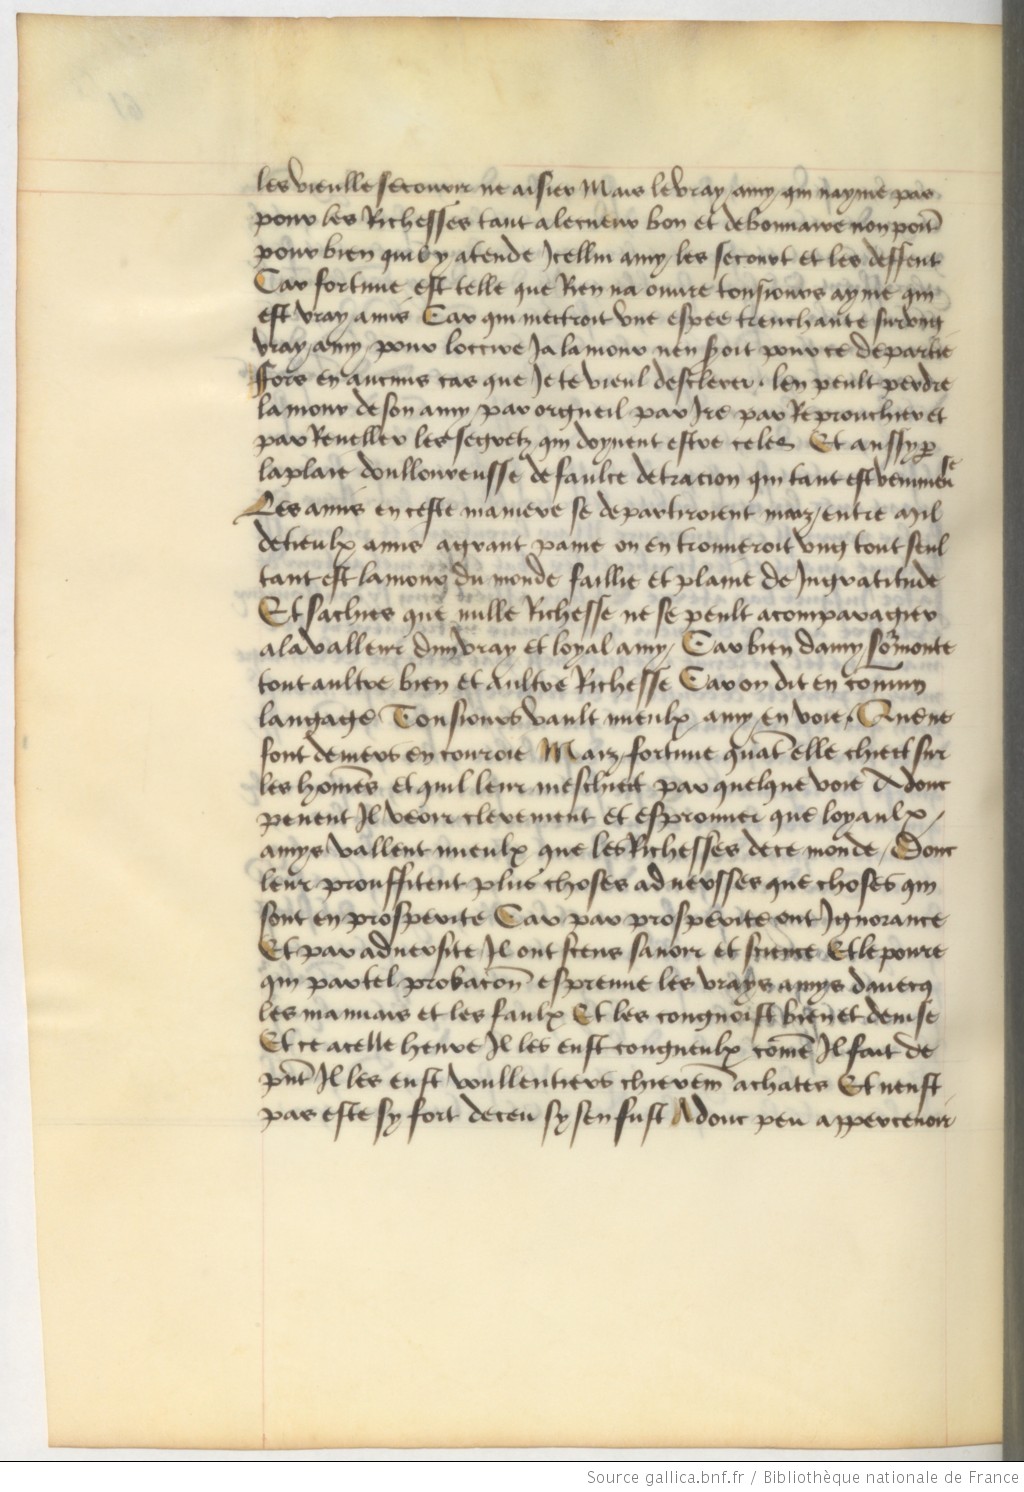 les vieulle secourir ne aisier Mais le vray amy qui nayme pas
pour les Richesses tant a le cueur bon et debonnaire non point
pour bien quil y atende Icellui amy les secourt et les deffent
Car fortune est telle que Rien na ouure tousiours ayme qui
est vray amis Car qui mectroit vne espee trenchante sur vng
vray amy pour loccire Ja lamour nen soit pour ce departie
Fors en aucuns cas que Je te vieul desclerer. len peult perdre
lamour de son amy par orgueil par Ire par Reprouchier et
par Reueller les segretz qui doyuent estre celes Et aussy p
la plaie doulloureusse de faulce detracion qui tant est venimeuse
Les amis en ceste maniere se departiroient maiz entre mil
de tieulx amis a grant paine on en trouueroit vng tout seul
tant est lamour du monde faillie et plaine de Ingratitude
Et saches que nulle Richesse ne se peult acomparagier
a la valleur dun vray et loyal amy / Car bien damy sormonte
tout aultre bien et aultre Richesse Car on dit en comun
langage Tousiours vault mieulx amy en voie. Que ne
font deniers en couroie Maiz fortune quat elle chiett sur
les homes et quil leur meschiett par quelque voie Adonc
peuent Il veoir clerement et esprouuer que loyaulx /
amys vallent mieulx que les Richesses de ce monde / Donc
leur prouffitent plus choses aduersses que choses qui
sont en prosperite Car par prosperite ont Ignorance
Et par aduersite Il ont scens sauoir et science Et le poure
qui par tel probacon espreuue les vrays amys dauecq
les mauuais et les faulx Et les congnoist bien et deuise
Et ce a celle heure Il les eust congneulx come Il fait de
pnt Il les eust voullentiers chierem achates Et neust
pas este sy fort deceu sy sen fust Adonc peu appercevoir
Source gallica.bnf.fr / Bibliothèque nationale de France